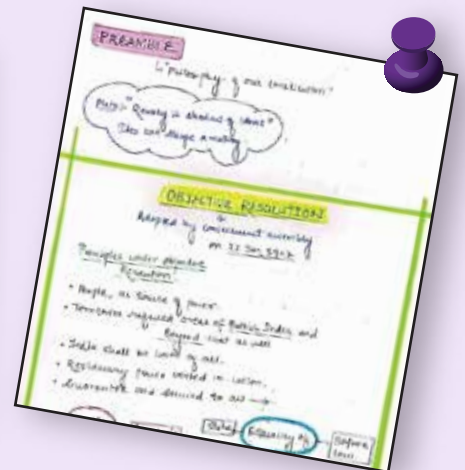 PREAMBLE
"Philosophy of our constitution"
Plato:- "Reality is shadow of ideas"
Idea can shape a reality
OBJECTIVE RESOLUTION
Adopted by constituent assembly
on 22 Jan, 1947
Principles under objective
Resolution
• People, as source of power.
• Territories required areas of British India and
Beyond that as well
• India shall be of all.
• Residuary power vested in union.
• Guarantee and secured to all →
State Equality of Before
law